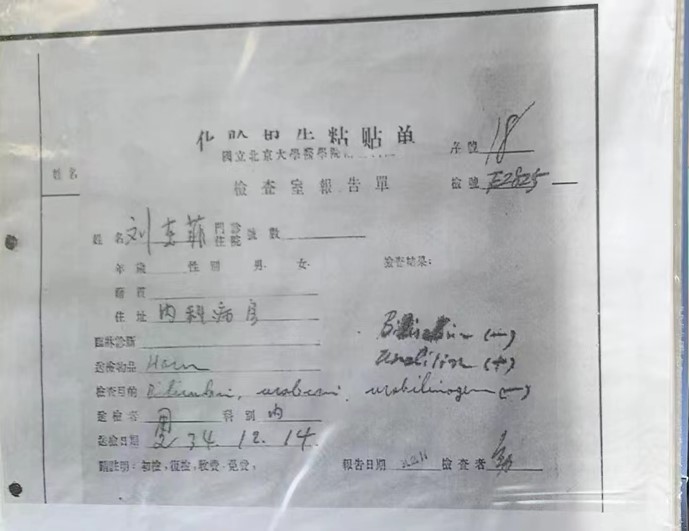 化验报告粘贴单
國立北京大學醫學院
序號 18
姓名
檢查室報告單
檢號 E2825
姓名 刘 菲 門診 住院 號數
年歲 性別 男 女 檢查結果:
籍貫
住址 内科病房
臨床診斷 (-)
送檢物品 Harn (+)
檢查目的 Bilirubin, urobilin, urobilinogen (-)
送檢者 周 科別 内
送檢日期 34. 12. 14.
附註明:初檢,復檢,收費,免費,
報告日期 檢查者